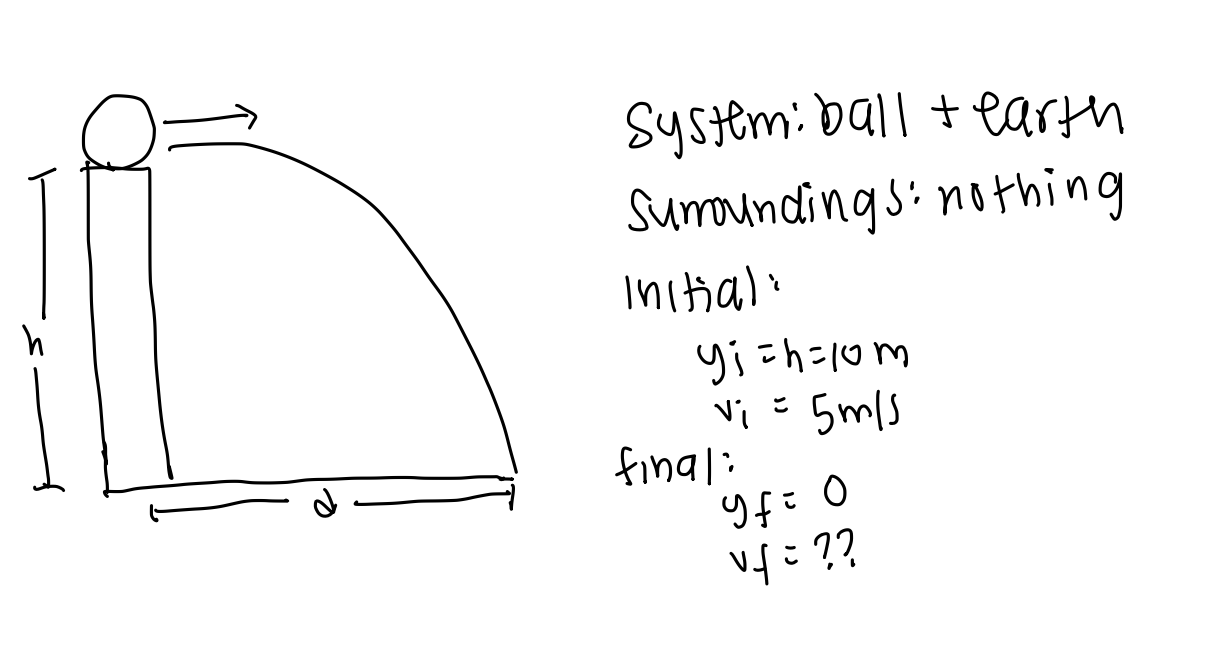 System: ball + earth
Surroundings: nothing
Initial:
yi = h = 10 m
vi = 5 m/s
final:
yf = 0
vf = ??
h
d